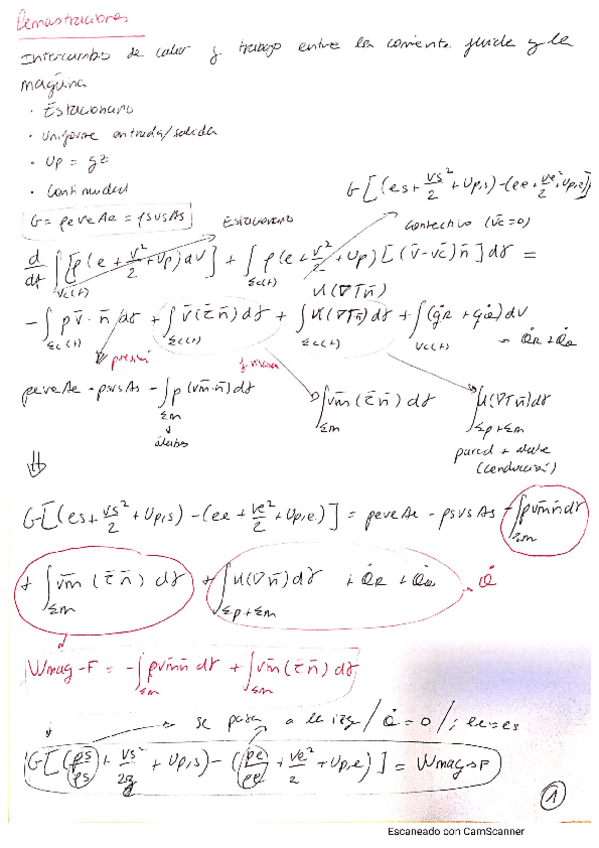 Demostraciones
Intercambio de calor y trabajo entre la corriente fluida y la
maquina
· Estacionario
· Uniforme entrada/salida
· Up = gz
· Continuidad
G[(es + vs²/2 + Up,s) - (ee + ve²/2 + Up,e)]
G = ρeveAe = ρsvsAs
Estacionario
Convectivo (v̄c=0)
d/dt ∫Vc(t) [ρ(e + v²/2 + Up)dV] + ∫Σc(t) ρ(e + v²/2 + Up)[(v̄-v̄c)n̄]dσ =
K(∇Tn̄)
- ∫Σc(t) p v̄·n̄ dσ + ∫Σc(t) v̄(τ̄n̄)dσ + ∫Σc(t) K(∇Tn̄)dσ + ∫Vc(t) (q̇R + q̇Q)dV
Q̇R + Q̇Q
presión
peveAe - psvsAs - ∫Σm p(vm̄·n̄)dσ
∫Σm vm̄(τ̄n̄)dσ
∫Σp+Σm K(∇Tn̄)dσ
álabes
pared + alabe
(conducción)
⇓
G[(es + vs²/2 + Up,s) - (ee + ve²/2 + Up,e)] = peveAe - psvsAs - ∫Σm pvm̄n̄dσ
+ ∫Σm vm̄(τ̄n̄)dσ + ∫Σp+Σm K(∇n̄)dσ + Q̇R + Q̇Q → Q̇
Wmaq-F = - ∫Σm pvm̄n̄ dσ + ∫Σm vm̄(τ̄n̄)dσ
se pasa a la izq / Q̇ = 0 /; ee=es
G[(ps/ρs) + vs²/2g + Up,s) - (pe/ρe + ve²/2 + Up,e)] = Wmaq→F
1
Escaneado con CamScanner